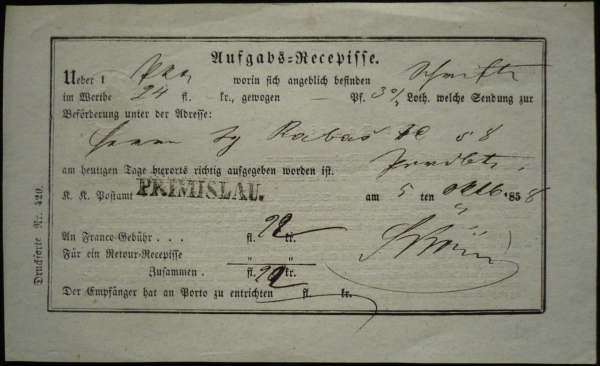 Aufgabs-Recepisse.
Ueber 1 worin sich angeblich befinden Schrift
im Werthe 24 fl. — kr., gewogen — Pf. 3 Loth. welche Sendung zur
Beförderung unter der Adresse:
Herrn Rabas
am heutigen Tage hierorts richtig aufgegeben worden ist.
K. K. Postamt PRIMISLAU. am 5 ten 858
An Franco-Gebühr . . . fl. 22 kr.
Für ein Retour-Recepisse " "
Zusammen . fl. kr.
Der Empfänger hat an Porto zu entrichten fl. kr.
Drucksorte Nr. 420.